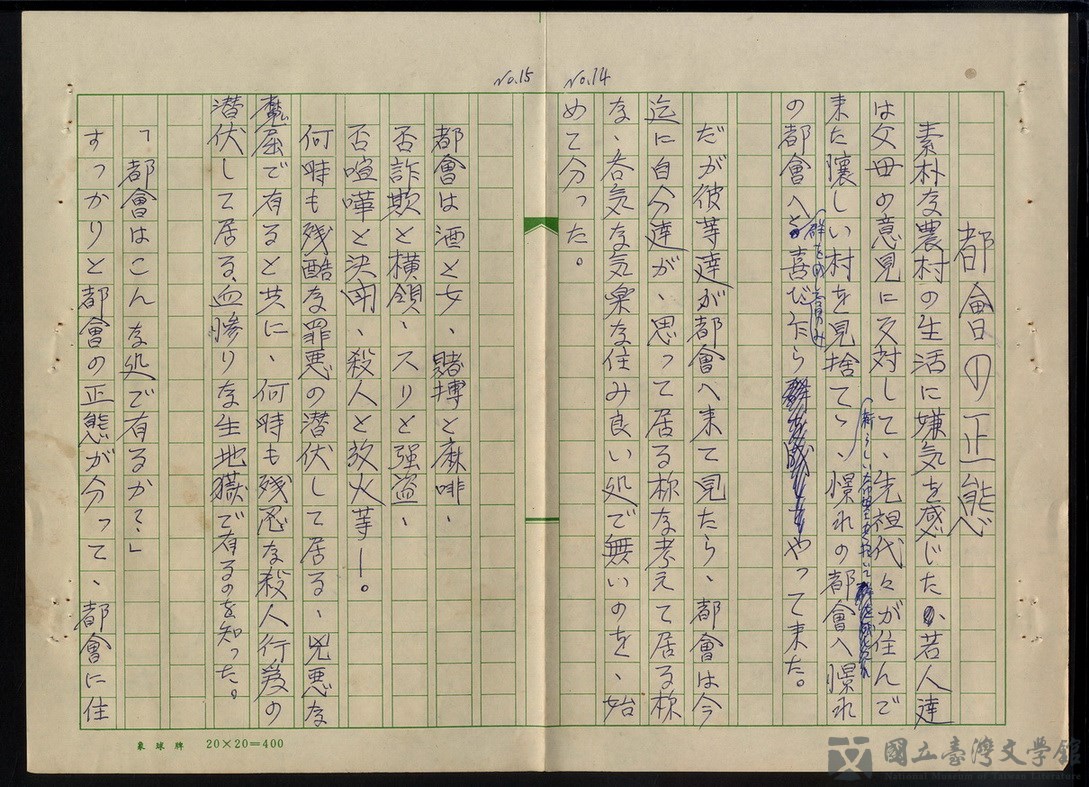 No.14
都會の正態
素朴な農村の生活に嫌気を感じた若人達
は父母の意見に反対して、先祖代々が住んで
来た懐しい村を見捨てゝ、憬れの都會へ憬れ
の都會へと喜び乍らやって来た。
だが彼等達が都會へ来て見たら、都會は今
迄に自分達が、思って居る様な考えて居る様
な、呑気な気楽な住み良い処で無いのを、始
めて分った。
No.15
都會は酒と女、賭搏と麻啡、
否詐欺と横領、スリと強盗、
否喧嘩と決闘、殺人と放火等ー。
何時も残酷な罪悪の潜伏して居る、兇悪な
魔屈で有ると共に、何時も残忍な殺人行為の
潜伏して居る血惨りな生地獄で有るのを知った。
「都會はこんな処で有るか？」
すっかりと都會の正態が分って、都會に住
象球牌 20×20=400
國立臺灣文學館
National Museum of Taiwan Literature